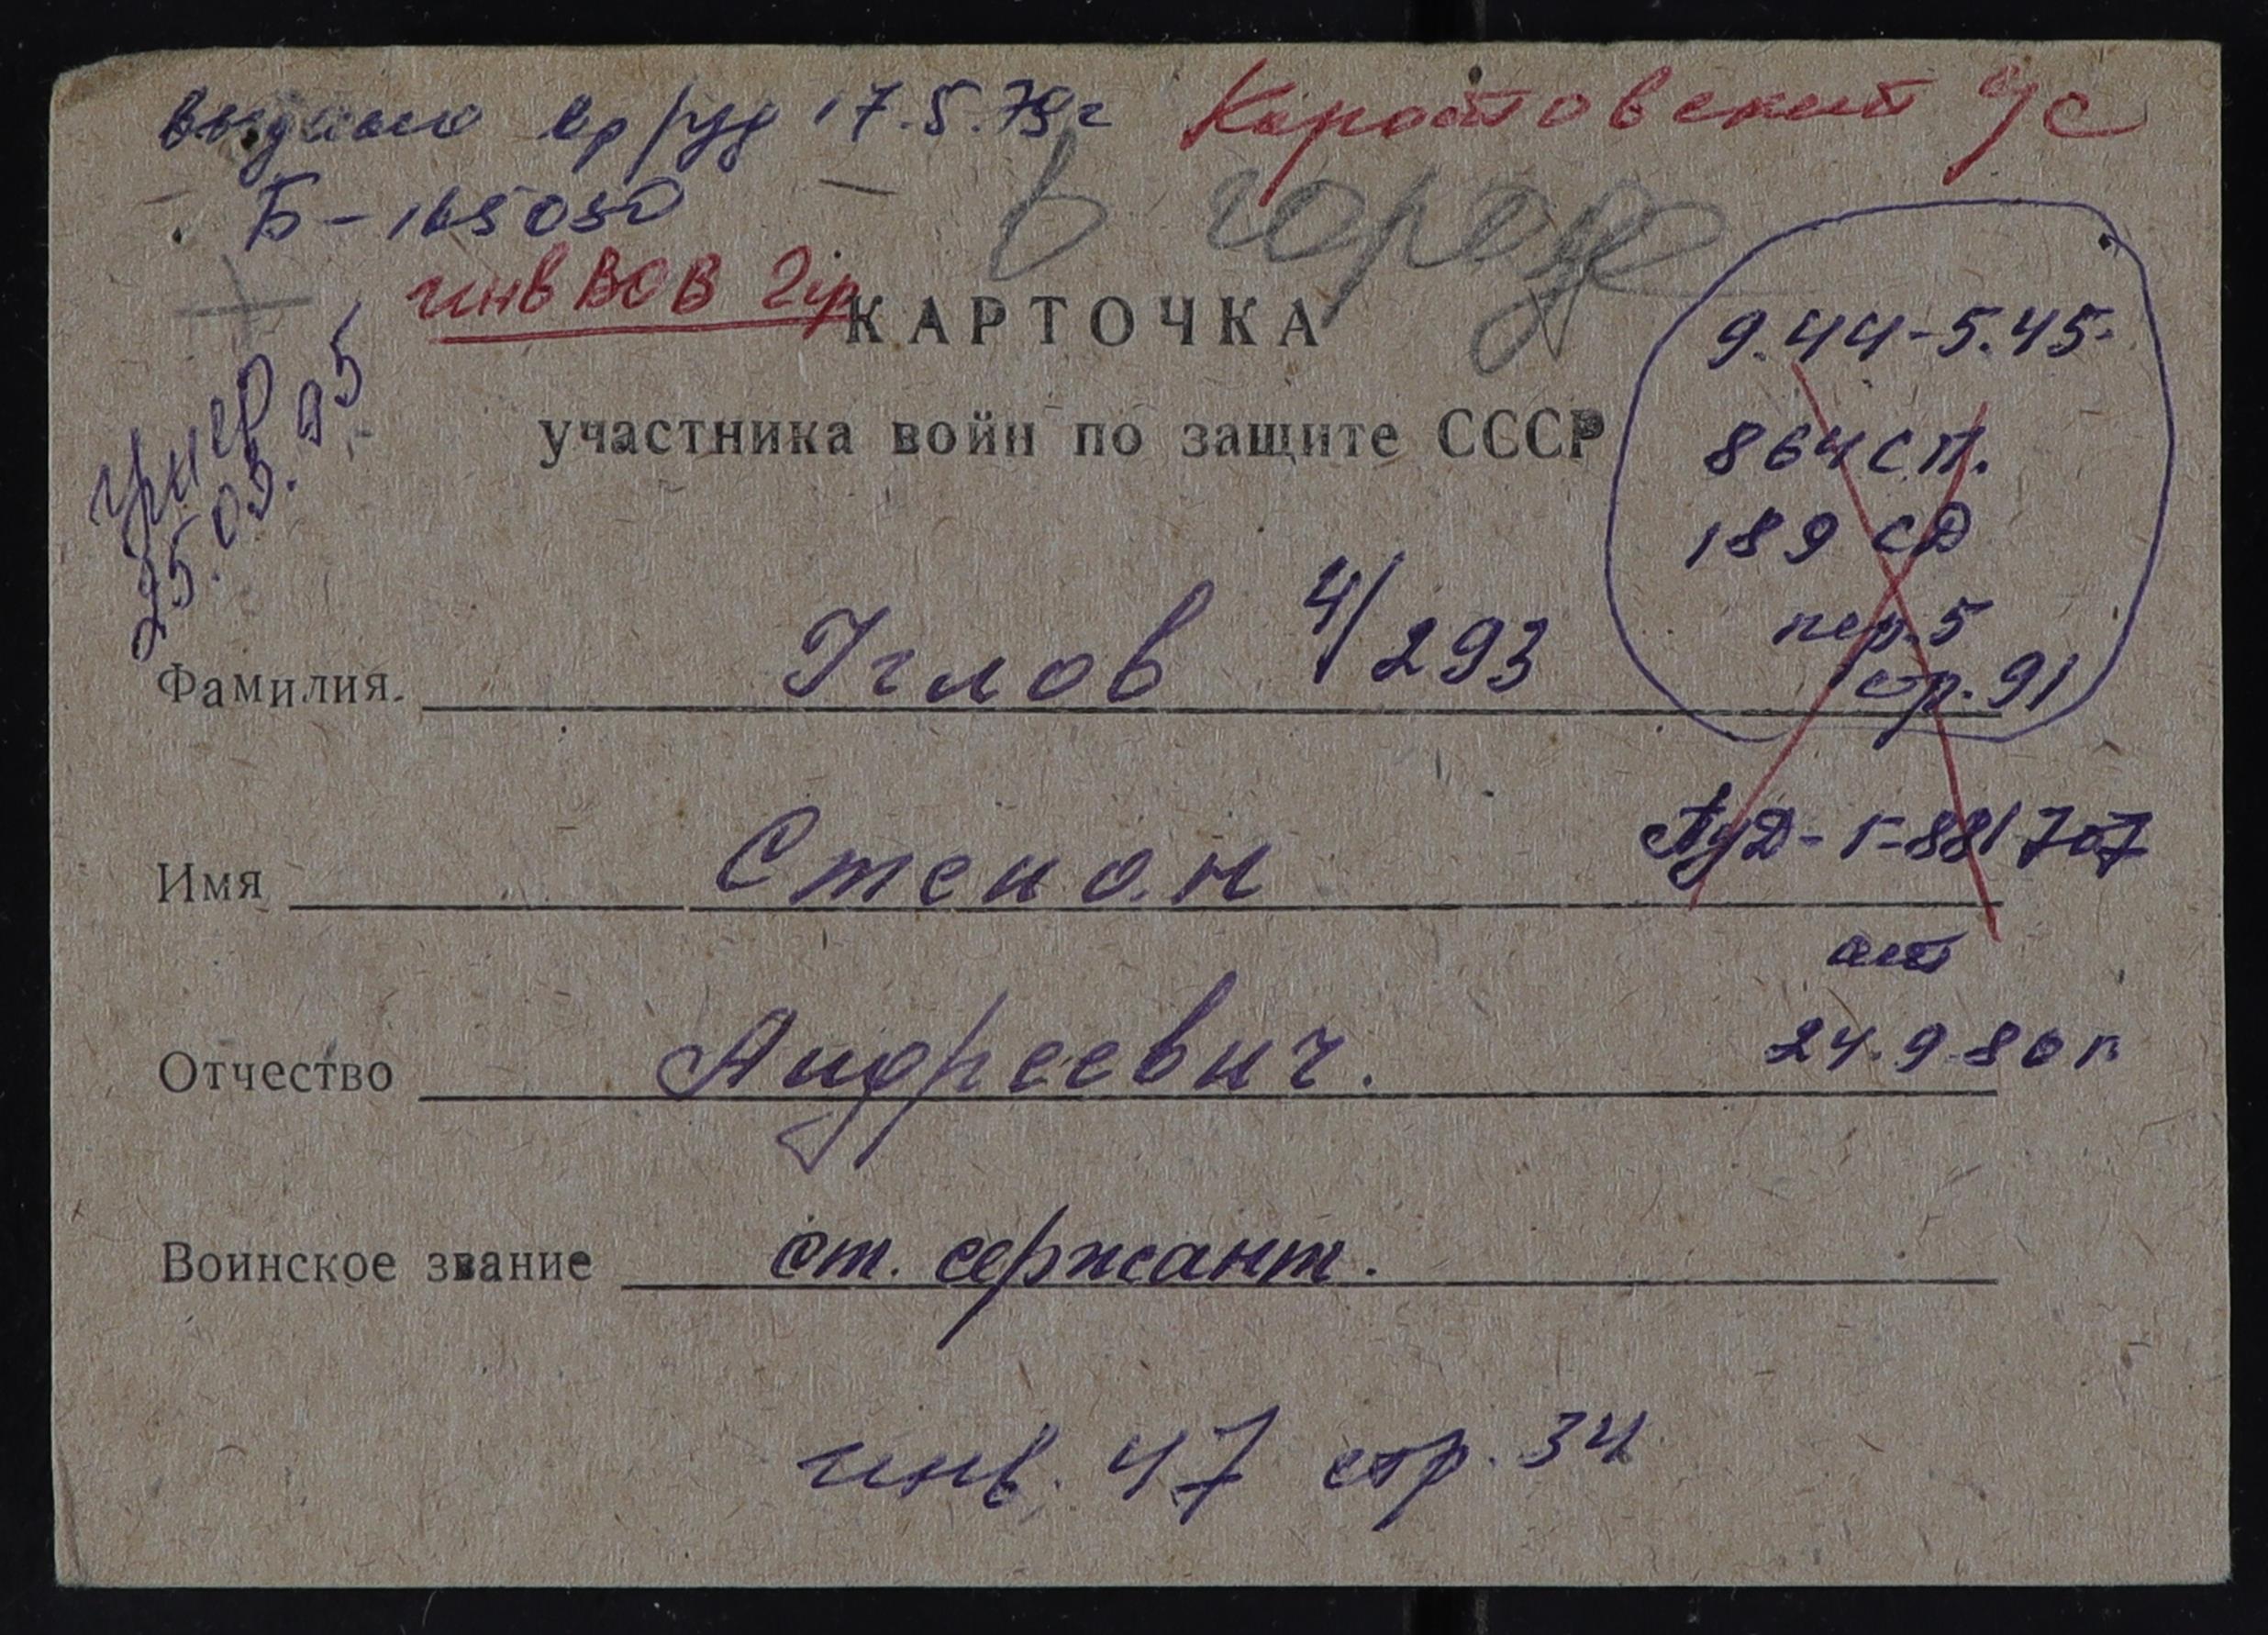 выдано 17.5.79г Каратовский с/с
Б-165050
в городе
инв ВОВ 2гр
КАРТОЧКА
участника войн по защите СССР
9.44-5.45г
864 СП.
189 СД
пер. 5
стр. 91
умер
25.03.95
Фамилия. Углов 4/293
Имя Степан
Г-881707
24.9.80г
Отчество Андреевич.
Воинское звание ст. сержант.
инв. 47 стр. 34